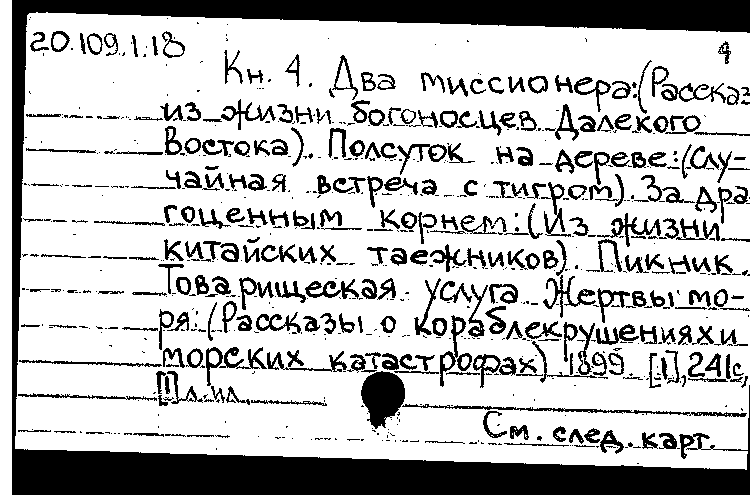 20.109.1.18
4
Кн. 4. Два миссионера:(Рассказ
из жизни богоносцев Далекого
Востока). Полсуток на дереве:(Слу-
чайная встреча с тигром). За дра-
гоценным корнем:(Из жизни
китайских таежников). Пикник.
Товарищеская услуга. Жертвы мо-
ря:(Рассказы о кораблекрушениях и
морских катастрофах) 1899. [1],241с,
[1] л. ил.
См. след. карт.